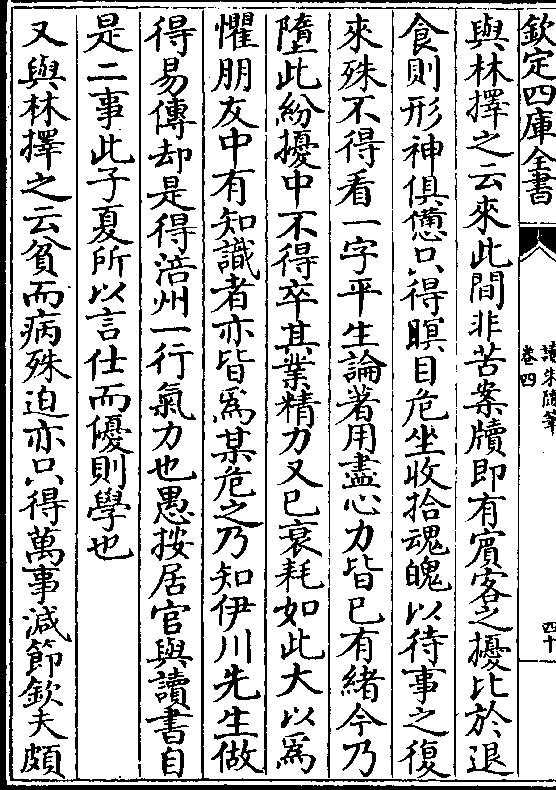 欽定四庫全書
讀朱隨筆
卷四
四十
與林擇之云來此間非苦案牘即有賓客之擾比於退
食則形神俱憊只得瞑目危坐收拾魂魄以待事之復
來殊不得看一字平生論著用盡心力皆已有緒今乃
墮此紛擾中不得卒其業精力又已衰耗如此大以為
懼朋友中有知識者亦皆為某危之乃知伊川先生做
得易傳却是得涪州一行氣力也愚按居官與讀書自
是二事此子夏所以言仕而優則學也
又與林擇之云貧而病殊迫亦只得萬事減節欽夫頗